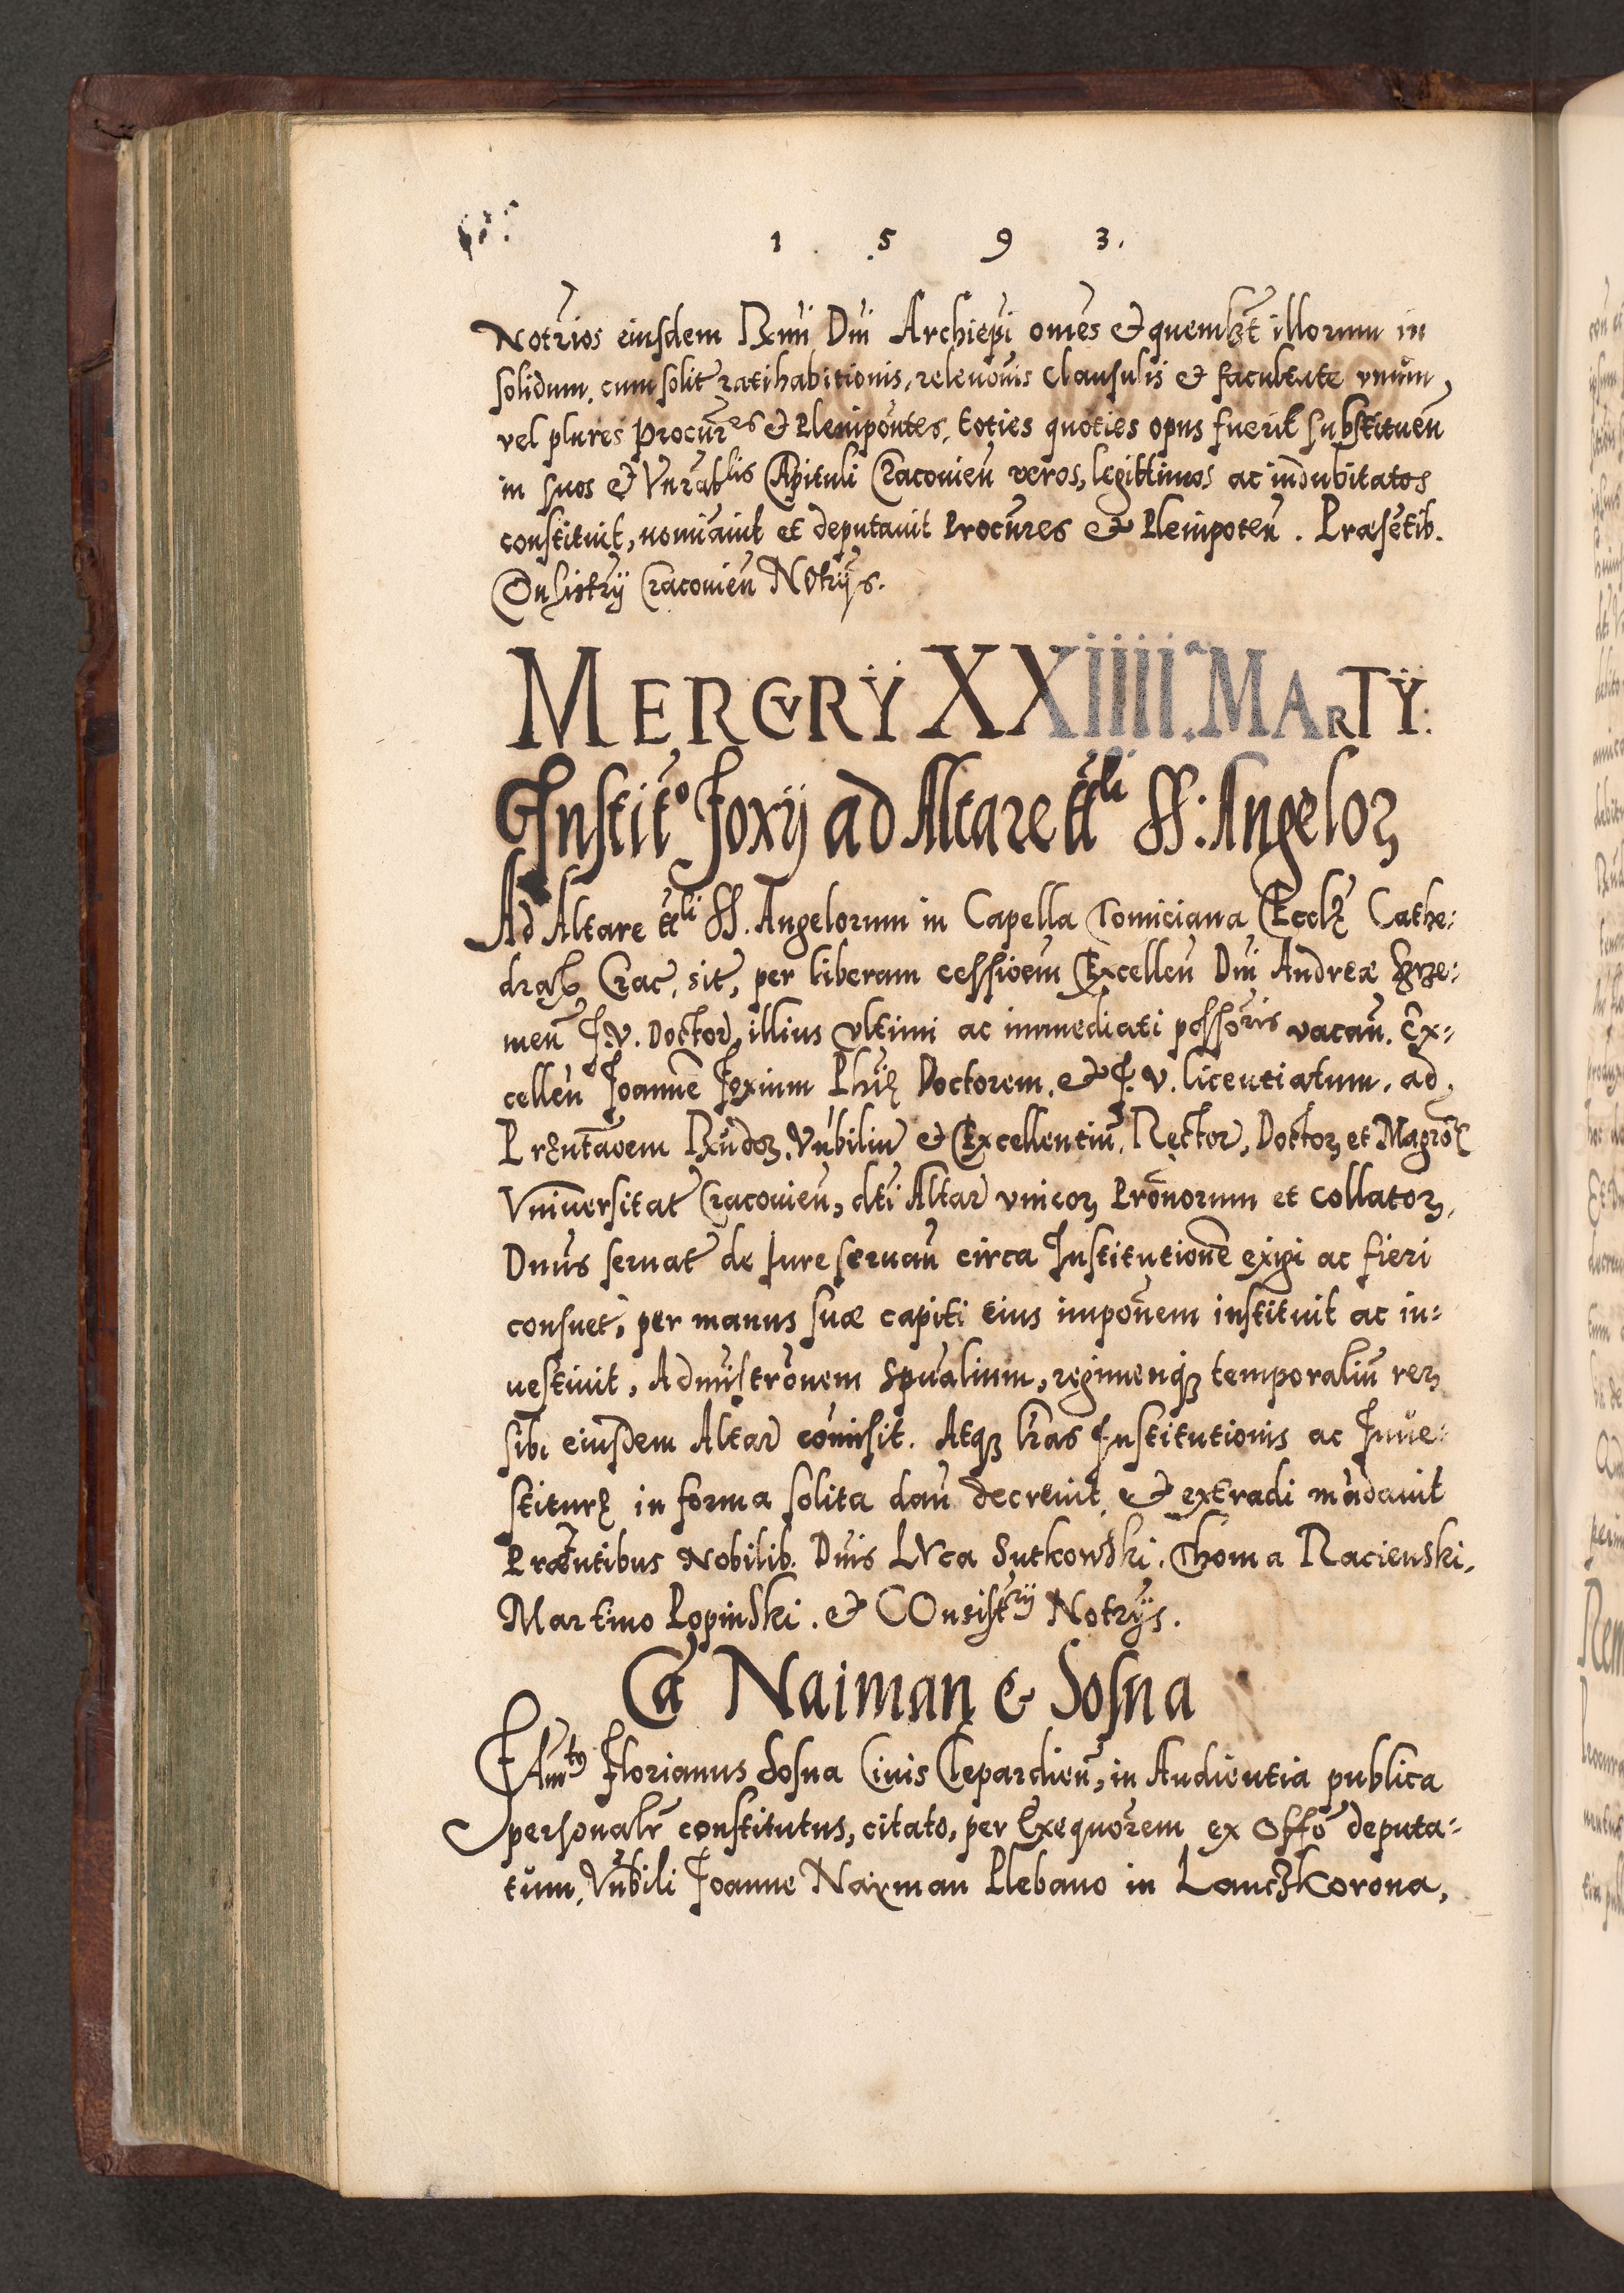 1 5 9 3.
Notrios eiusdem Rxmi Dni Archiepi omes et quemlzt illorum in
solidum, cum solit ratihabitionis, releuonis clausulis et facultate vnum,
vel plures Procur̄es et Plenipontes, toties quoties opus fuerit substituen̄
in suos et Vnrablis Capituli Cracouien̄ veros, legittimos ac indubitatos
constituit, nomiauit et deputauit Procures et Plenipoten̄. Præsētib.
Consistrij Cracouien̄ Notrijs.
MERCVRŸ XXIIII.ᵃ MARTŸ:
Institᵒ Foxij ad Altare ttli SS: Angeloꝝ
Ad Altare ttli SS. Angelorum in Capella Tomiciana Eccl̄ę Cathe:
dral̄ Crac̄, sit̄, per liberam cessioem Excellen̄ Dni Andreæ
men̄ J.V. Doctor̄, illius vltimi ac immediati possoris vacan̄. Ex=
cellen̄ Joannē Foxium Phię Doctorem, et J.V. licentiatum, ad
Prntaōem Rxndoꝝ, Vnbiliū et Excellentiū, Rector̄, Doctoꝝ et Magrōꝝ
Vniuersitat̄ Cracouien̄, dti Altar̄ vnicoꝝ Pronorum et collatoꝝ,
Dnus seruat̄ de Jure seruan̄ circa Institutionē exigi ac fieri
consuet̄, per manus suæ capiti eius imponem instituit ac in=
uestiuit, Admistronem spualium, regimenqꝫ temporaliū reꝝ
sibi eiusdem Altar̄ comisit. Atqꝫ lras Institutionis ac Inue=
stiturę in forma solita dan̄ decreuit et extradi mādauit
Præntibus Nobilib. Dnis LVca Sutkowski, Thoma Racienski,
Martino Lopinski. et COnsistrij Notrijs.
Cā Naiman & Sosna
Famtus Florianus Sosna Ciuis Clepardien̄, in Audientia publica
personalr̄ constitutus, citato, per Exequorem ex offo deputa=
tum, Vnbili Joanne Naxman Plebano in Lanczkorona,